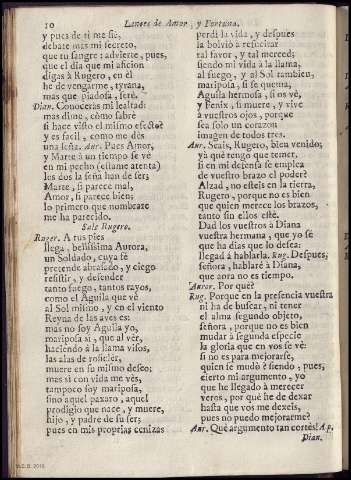 10 Lances de Amor, y Fortuna.
y pues de ti me fie,
debate mas mi secreto,
que tu sangre: advierte, pues,
que el dia que mi aficion
digas à Rugero, en èl
he de vengarme, tyrana,
mas que piadosa, serè.
Dian. Conoceràs mi lealtad:
mas dime, còmo sabrè
si hace visto el mismo efecto?
y es facil, como me dès
una seña. Aur. Pues Amor,
y Marte à un tiempo se vè
en mi pecho (ellame atenta)
les dos la seña han de ser;
Marte, si parece mal,
Amor, si parece bien;
lo primero que nombrare
me ha parecido.
Sale Rugero.
Ruger. A tus pies
llega, bellissima Aurora,
un Soldado, cuya fè
pretende abrasado, y ciego
resistir, y defender
tanto fuego, tantos rayos,
como el Aguila que vè
al Sol mismo, y en el viento
Reyna de las aves es:
mas no soy Aguila yo,
mariposa sì, que al vèr,
haciendo à la llama visos,
las alas de rosiclèr,
muere en su mismo deseo;
mas si con vida me vès,
tampoco soy mariposa,
sino aquel paxaro, aquel
prodigio que nace, y muere,
hijo, y padre de su ser;
pues en mis proprias cenizas
perdì la vida, y despues
la bolviò à resucitar
tal favor, y tal merced;
siendo mi vida à la llama,
al fuego, y al Sol tambien,
mariposa, si se quema,
Aguila hermosa, si os vè,
y Fenix, si muere, y vive
à vuestros ojos, porque
sea solo un corazon
imagen de todos tres.
Aur. Seais, Rugero, bien venido;
yà què tengo que temer,
si en mi defensa se emplea
de vuestro brazo el poder?
Alzad, no esteis en la tierra,
Rugero, porque no es bien
que quien merece los brazos,
tanto sin ellos estè.
Dad los vuestros à Diana
vuestra hermana, que yo sè
que ha dias que lo desea:
llegad à hablarla. Rug. Despues,
señora, hablarè à Diana,
que aora no es tiempo.
Auror. Por què?
Rug. Porque en la presencia vuestra
ni ha de buscar, ni tener
el alma segundo objeto,
señora, porque no es bien
mudar à segunda especie
la gloria que en vos se vè:
si no es para mejorarse,
quien se mudò? siendo, pues,
cierto mi argumento, yo
que he llegado à merecer
veros, por què he de dexar
hasta que vos me dexeis,
pues no puedo mejorarme?
Aur. Què argumento tan cortès! Ap.
Dian.
W.C.D. 2010